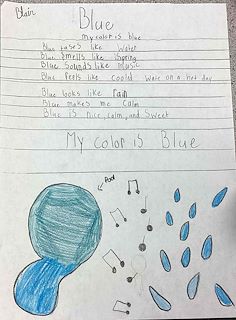 Blair
Blue
my color is blue
Blue tases like water
Blue smells like spring
Blue sounds like music
Blue feels like coold wate on a hot day
Blue looks like rain
Blue makes me calm
Blue is nice, calm, and sweet
My color is Blue
Pool